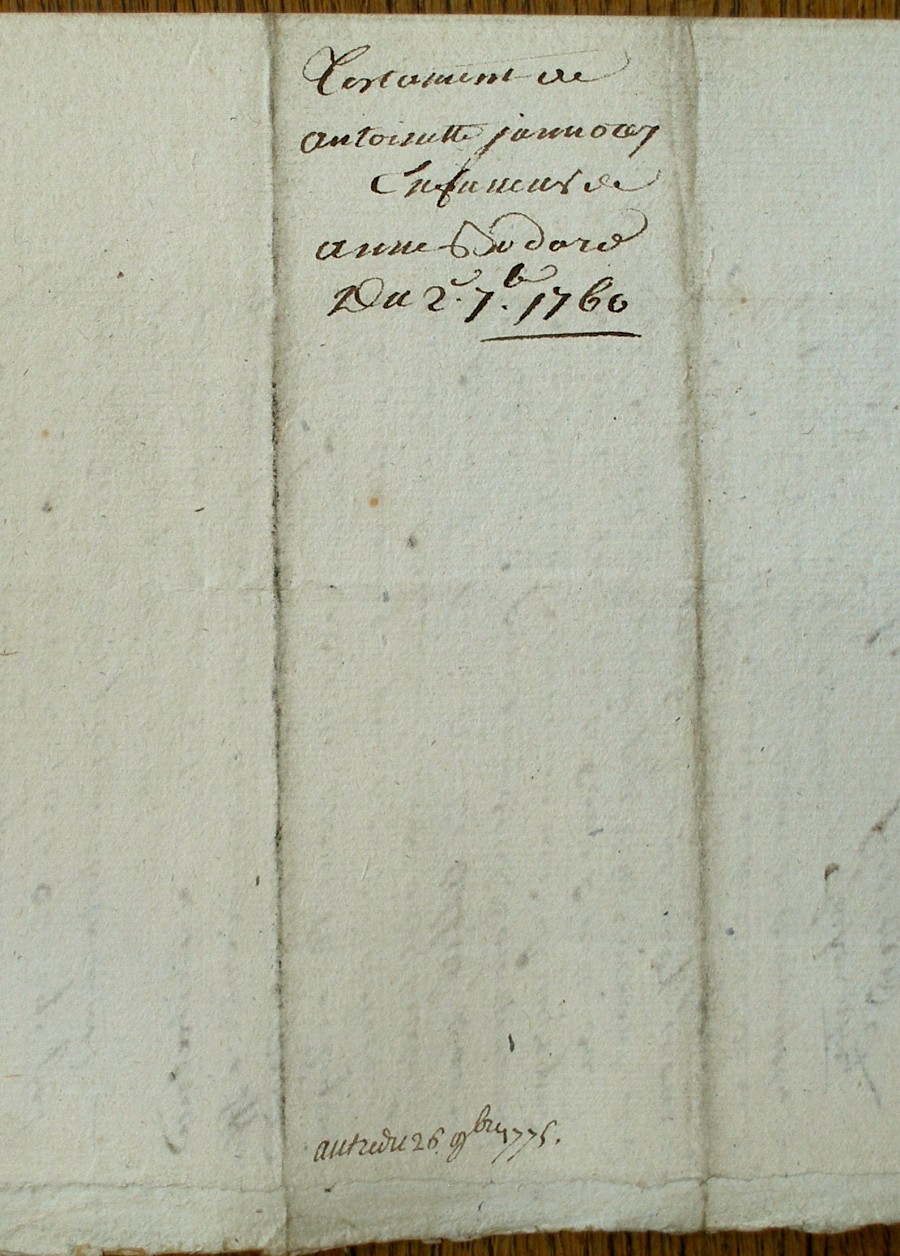 Testament de
antoinette jannoay
En faveur de
anne Bodard
Du 2e. 7b. 1760
autre du 26. 9bre 1775.